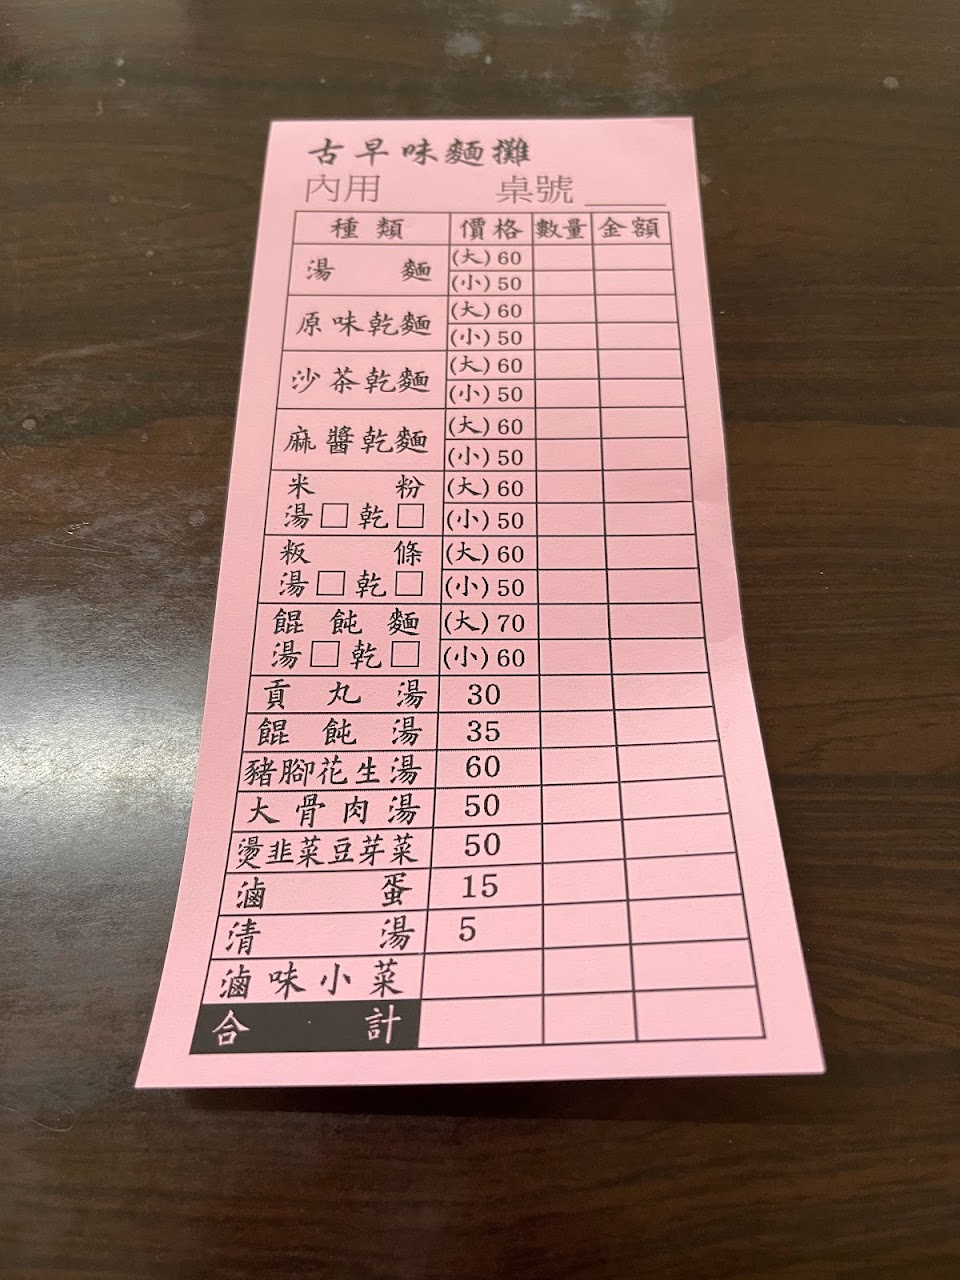 古早味麵攤
內用 桌號
種類 價格 數量 金額
湯麵 (大) 60
(小) 50
原味乾麵 (大) 60
(小) 50
沙茶乾麵 (大) 60
(小) 50
麻醬乾麵 (大) 60
(小) 50
米粉 (大) 60
湯□乾□ (小) 50
粄條 (大) 60
湯□乾□ (小) 50
餛飩麵 (大) 70
湯□乾□ (小) 60
貢丸湯 30
餛飩湯 35
豬腳花生湯 60
大骨肉湯 50
燙韭菜豆芽菜 50
滷蛋 15
清湯 5
滷味小菜
合計